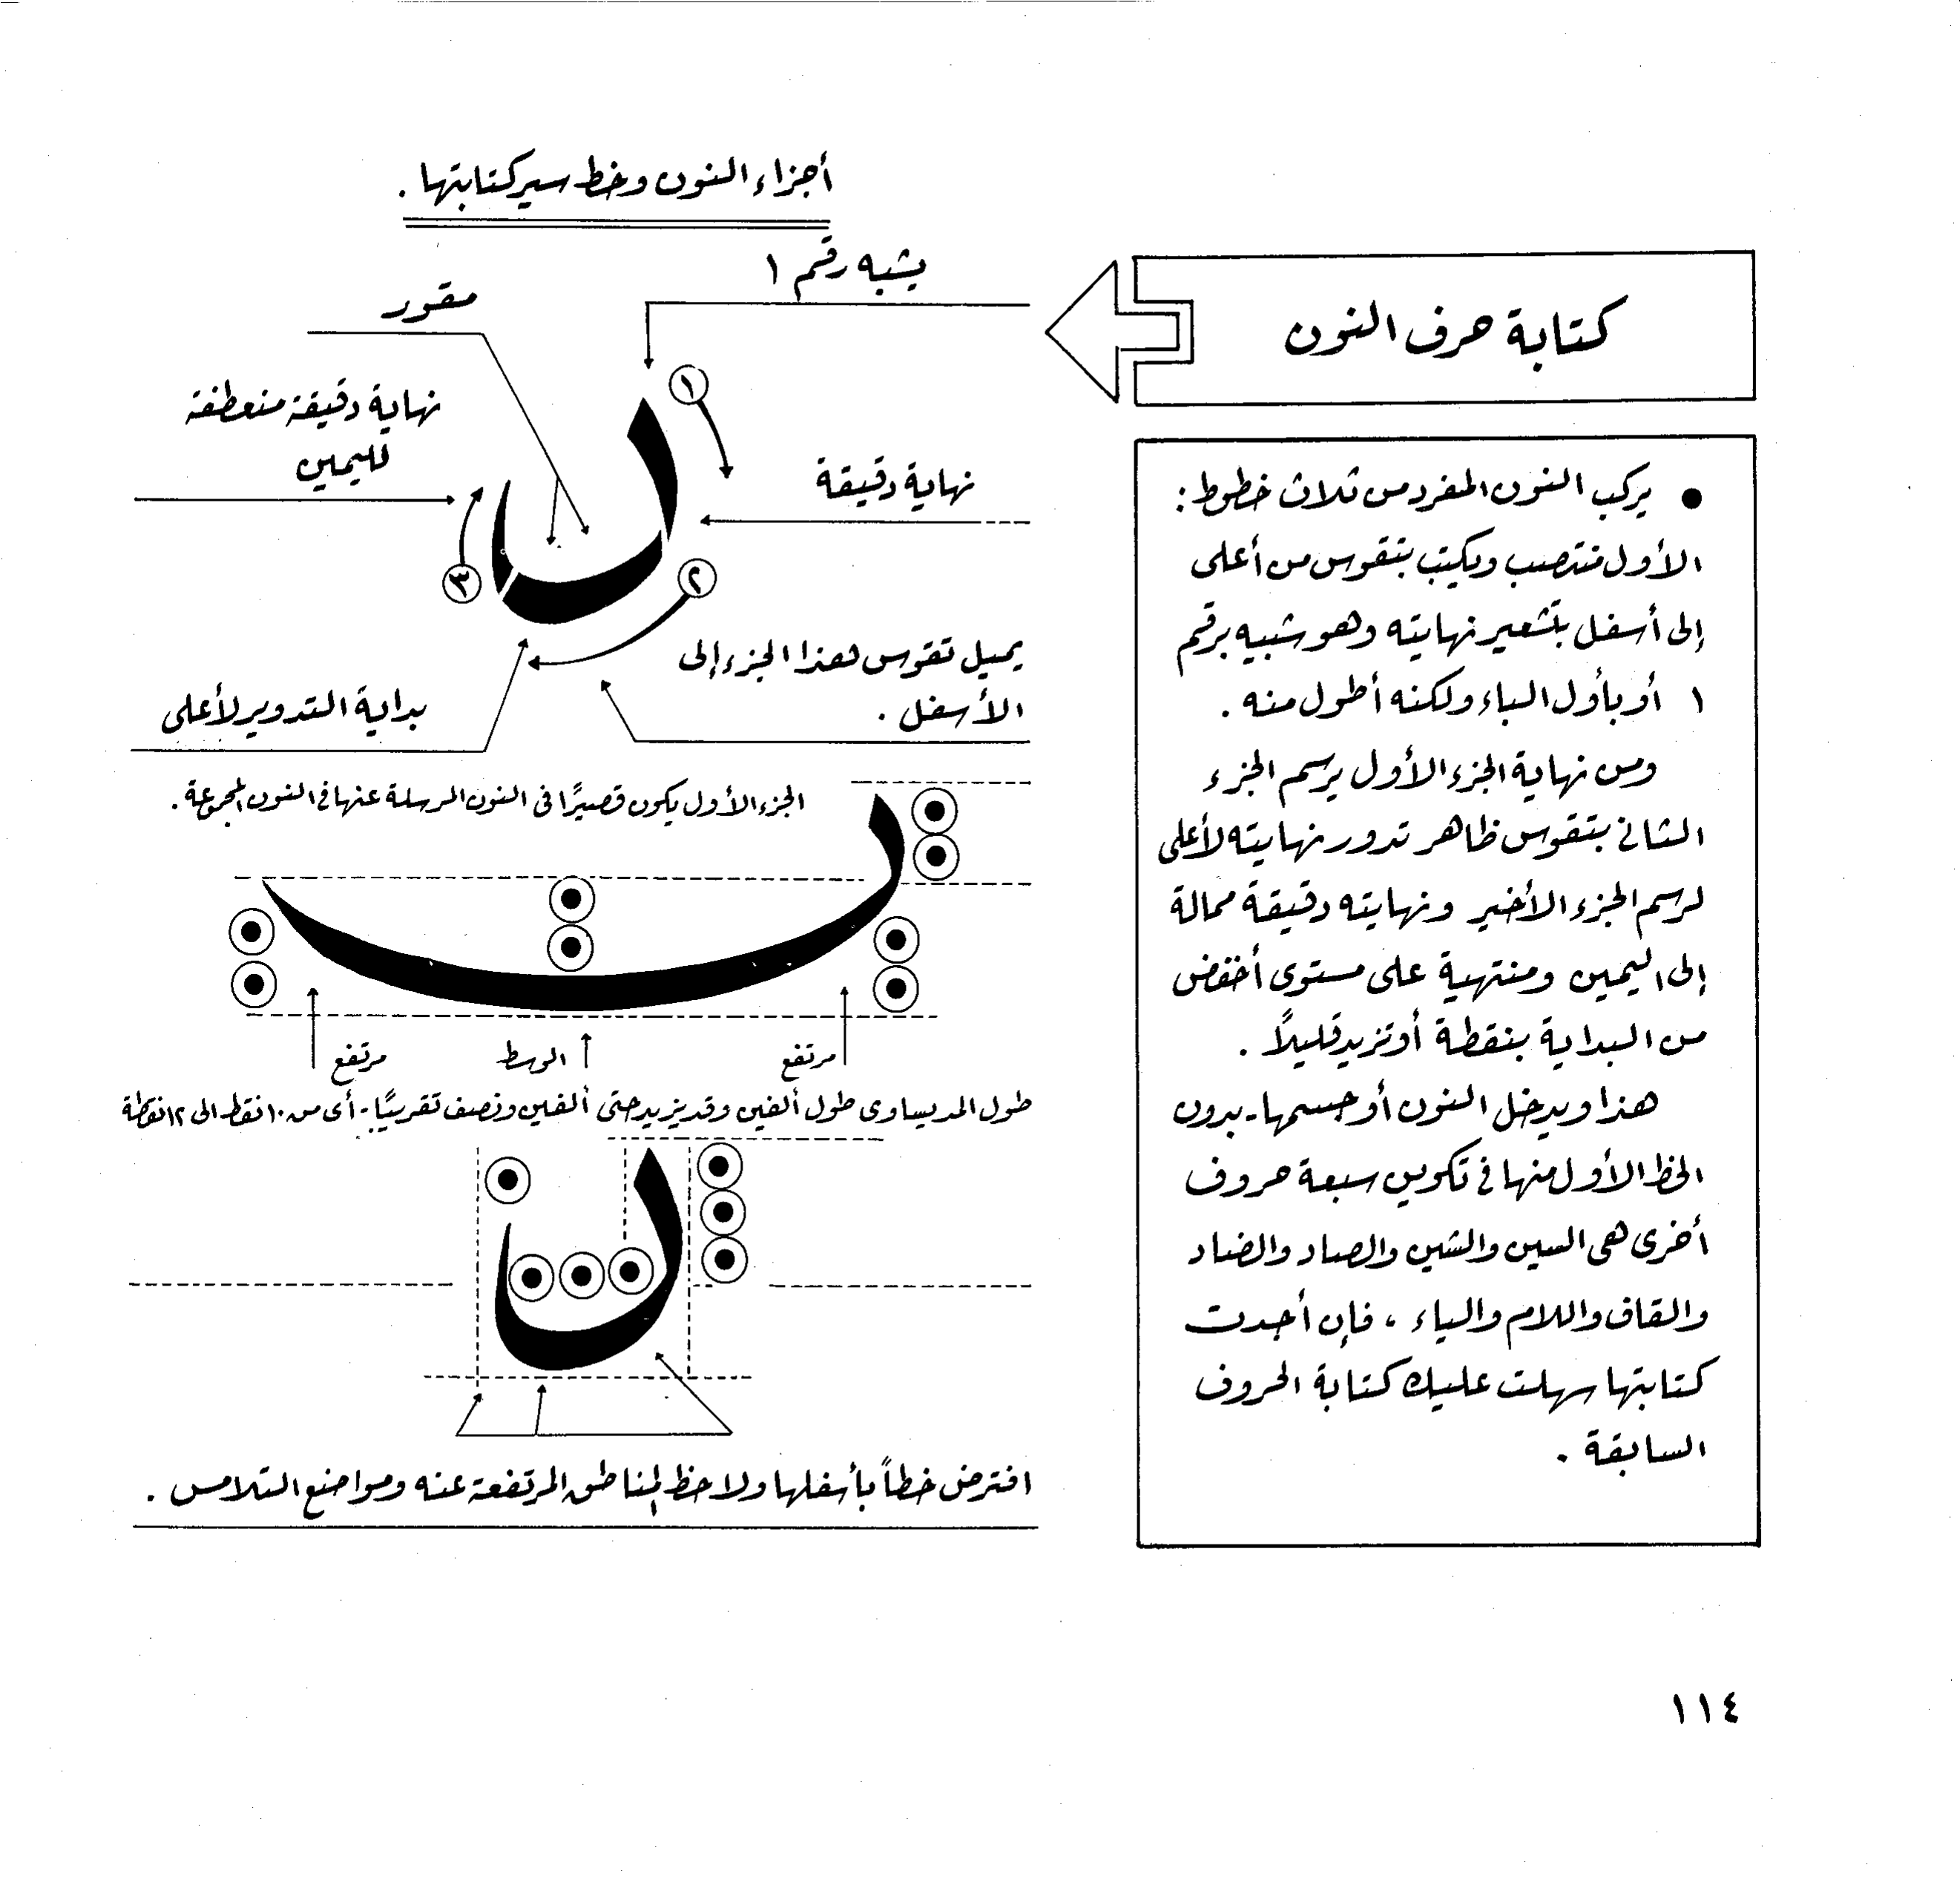 كتابة حرف النون
● يركب النون المفرد من ثلاث خطوط:
الأول منتصب ويكتب بتقوس من أعلى
إلى أسفل بتشعير نهايته وهو شبيه برقم
١ أو بأول الباء ولكنه أطول منه.
ومن نهاية الجزء الأول يرسم الجزء
الثانى بتقوس ظاهر تدور نهايته لأعلى
لرسم الجزء الأخير ونهايته دقيقة ممالة
إلى اليمين ومنتهية على مستوى أخفض
من البداية بنقطة أو تزيد قليلاً.
هذا ويدخل النون أو جسمها - بدون
الخط الأول منها فى تكوين سبعة حروف
أخرى هى السين والشين والصاد والضاد
والقاف واللام والياء، فإن أجدت
كتابتها سهلت عليك كتابة الحروف
السابقة.
أجزاء النون وخط سير كتابتها.
يشبه رقم ١
مقور
١
نهاية دقيقة منعطفة
لليمين
نهاية دقيقة
٢
٣
يميل تقوس هذا الجزء إلى
الأسفل.
بداية التدوير لأعلى
الجزء الأول يكون قصيرًا فى النون المرسلة عنها فى النون المجموعة.
مرتفع
الوسط
مرتفع
طول المد يساوى طول ألفين وقد يزيد حتى ألفين ونصف تقريبًا - أى من ١٠ نقط الى ١٢ نقطة
افترض خطاً بأسفلها ولاحظ المناطق المرتفعة عنه ومواضع التلامس.
١١٤